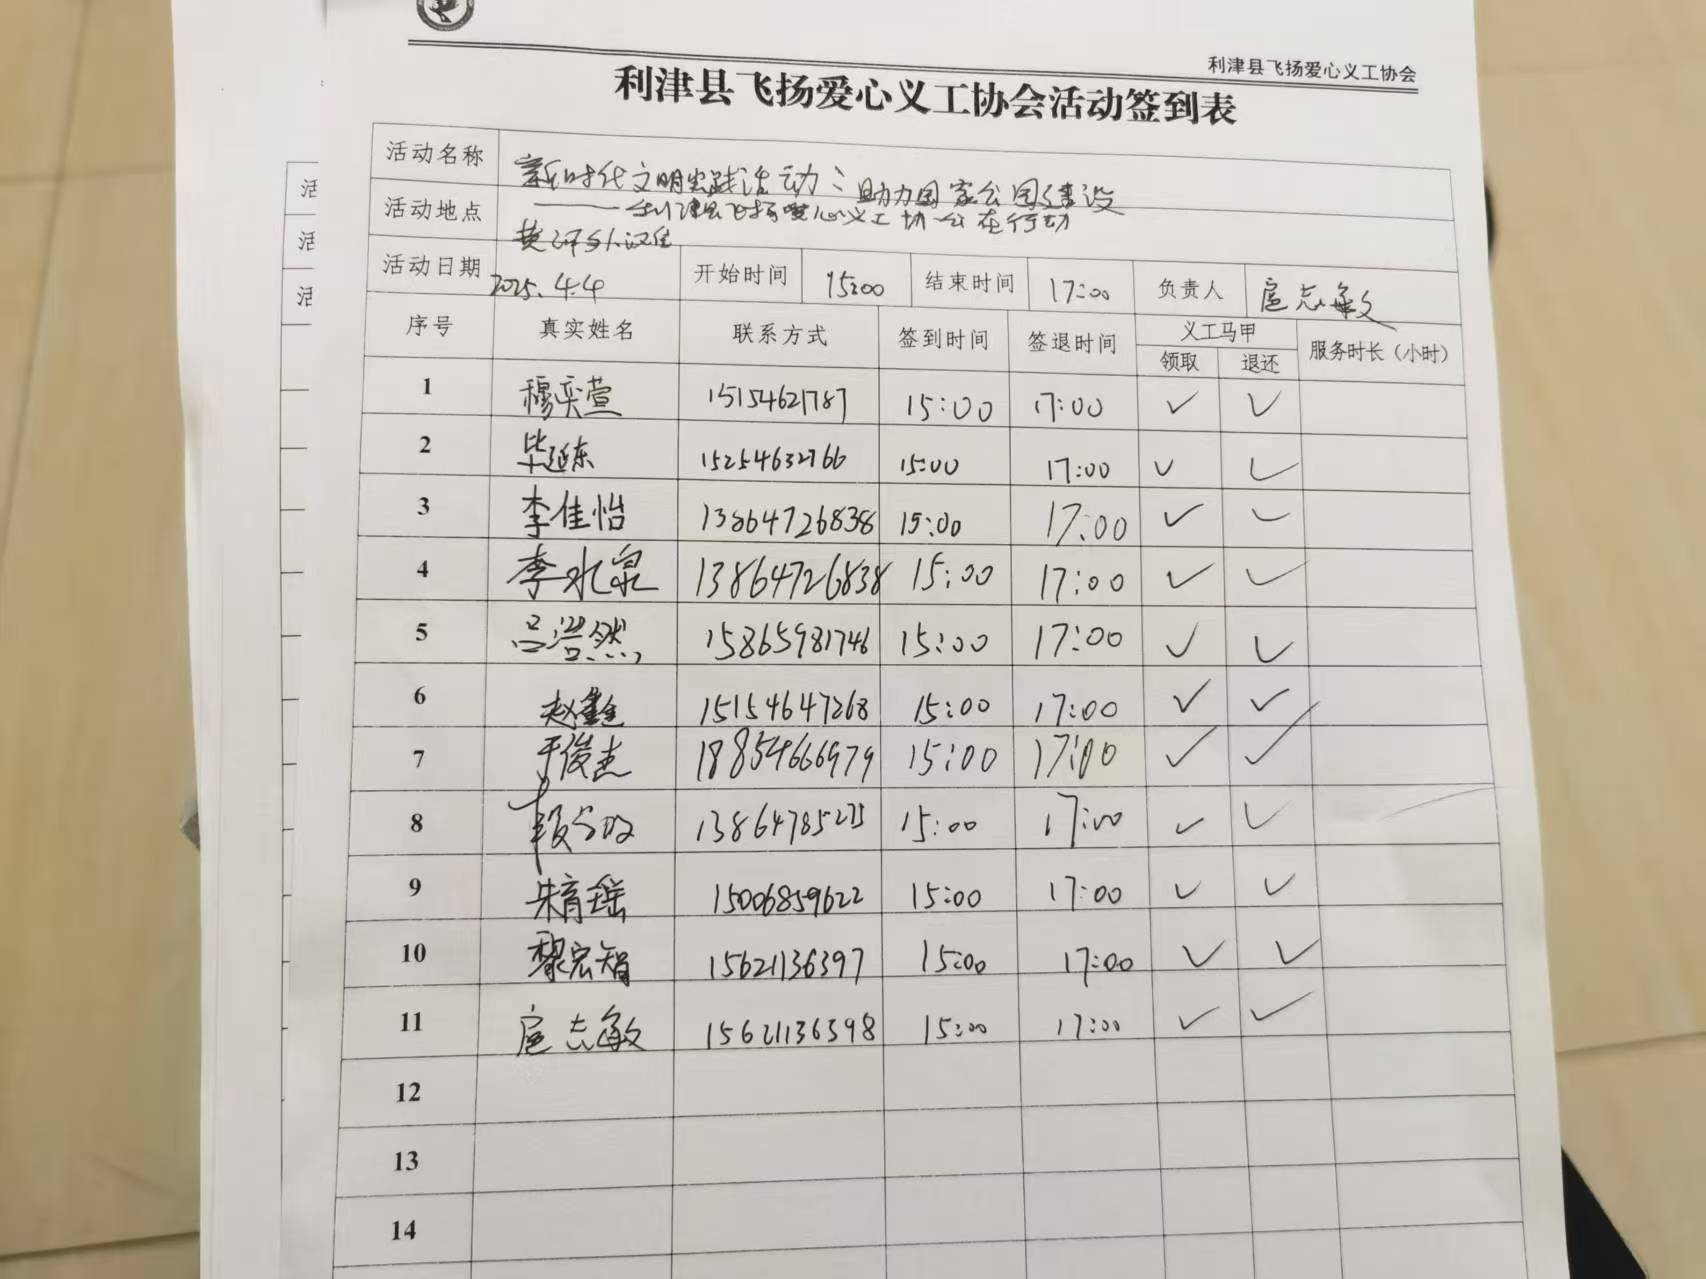 利津县飞扬爱心义工协会
利津县飞扬爱心义工协会活动签到表
活动名称 新时代文明实践活动：助力国家公园建设
——利津县飞扬爱心义工协会在行动
活动地点 黄河外汉住
活动日期 2025.4.4 开始时间 15:00 结束时间 17:00 负责人 扈志敏
序号 真实姓名 联系方式 签到时间 签退时间 义工马甲 领取 退还 服务时长（小时）
1 穆奕萱 15154621787 15:00 17:00 ✓ ✓
2 毕延东 15254632766 15:00 17:00 ✓ ✓
3 李佳怡 13864726838 15:00 17:00 ✓ ✓
4 李水泉 13864726838 15:00 17:00 ✓ ✓
5 吕浩然 15865981746 15:00 17:00 ✓ ✓
6 赵鑫 15154647268 15:00 17:00 ✓ ✓
7 于俊杰 18854666979 15:00 17:00 ✓ ✓
8 13864785275 15:00 17:00 ✓ ✓
9 朱育瑶 15006859622 15:00 17:00 ✓ ✓
10 黎宏智 15621136397 15:00 17:00 ✓ ✓
11 扈志敏 15621136398 15:00 17:00 ✓ ✓
12
13
14
活
活
活